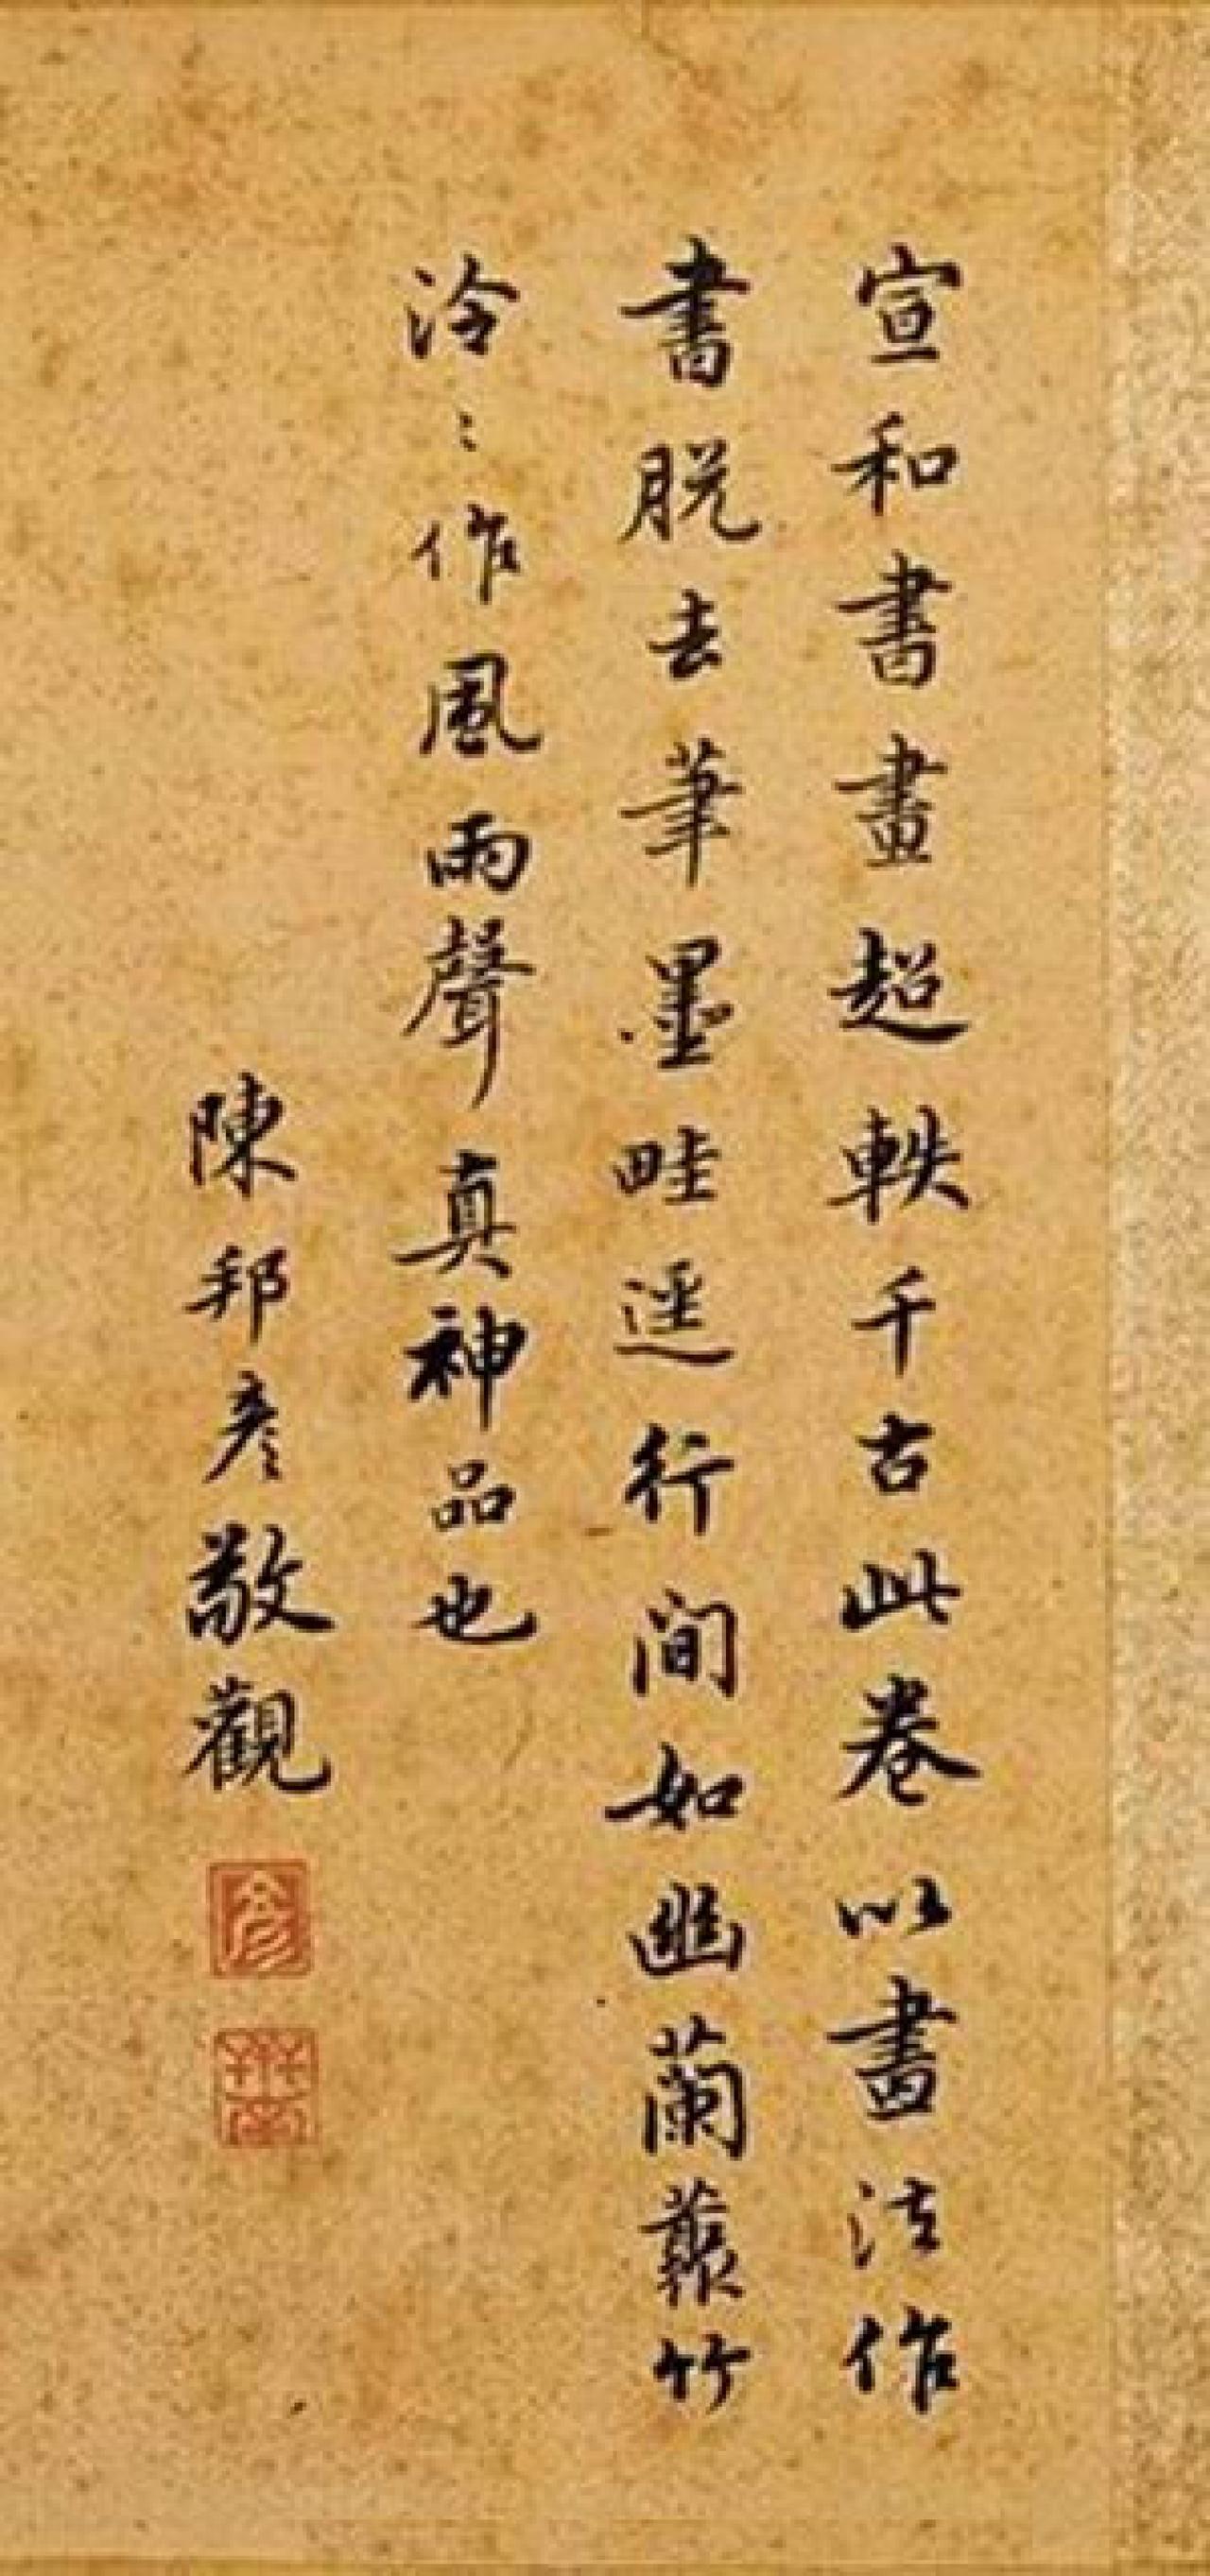 宣和書畫超軼千古此卷以畫法作
書脫去筆墨畦逕行間如幽蘭藂竹
泠〻作風雨聲真神品也
陳邦彥敬觀